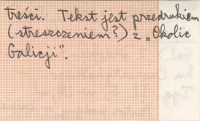 treści. Tekst jest przedrukiem
(streszczeniem?) z „Okolic
Galicji".